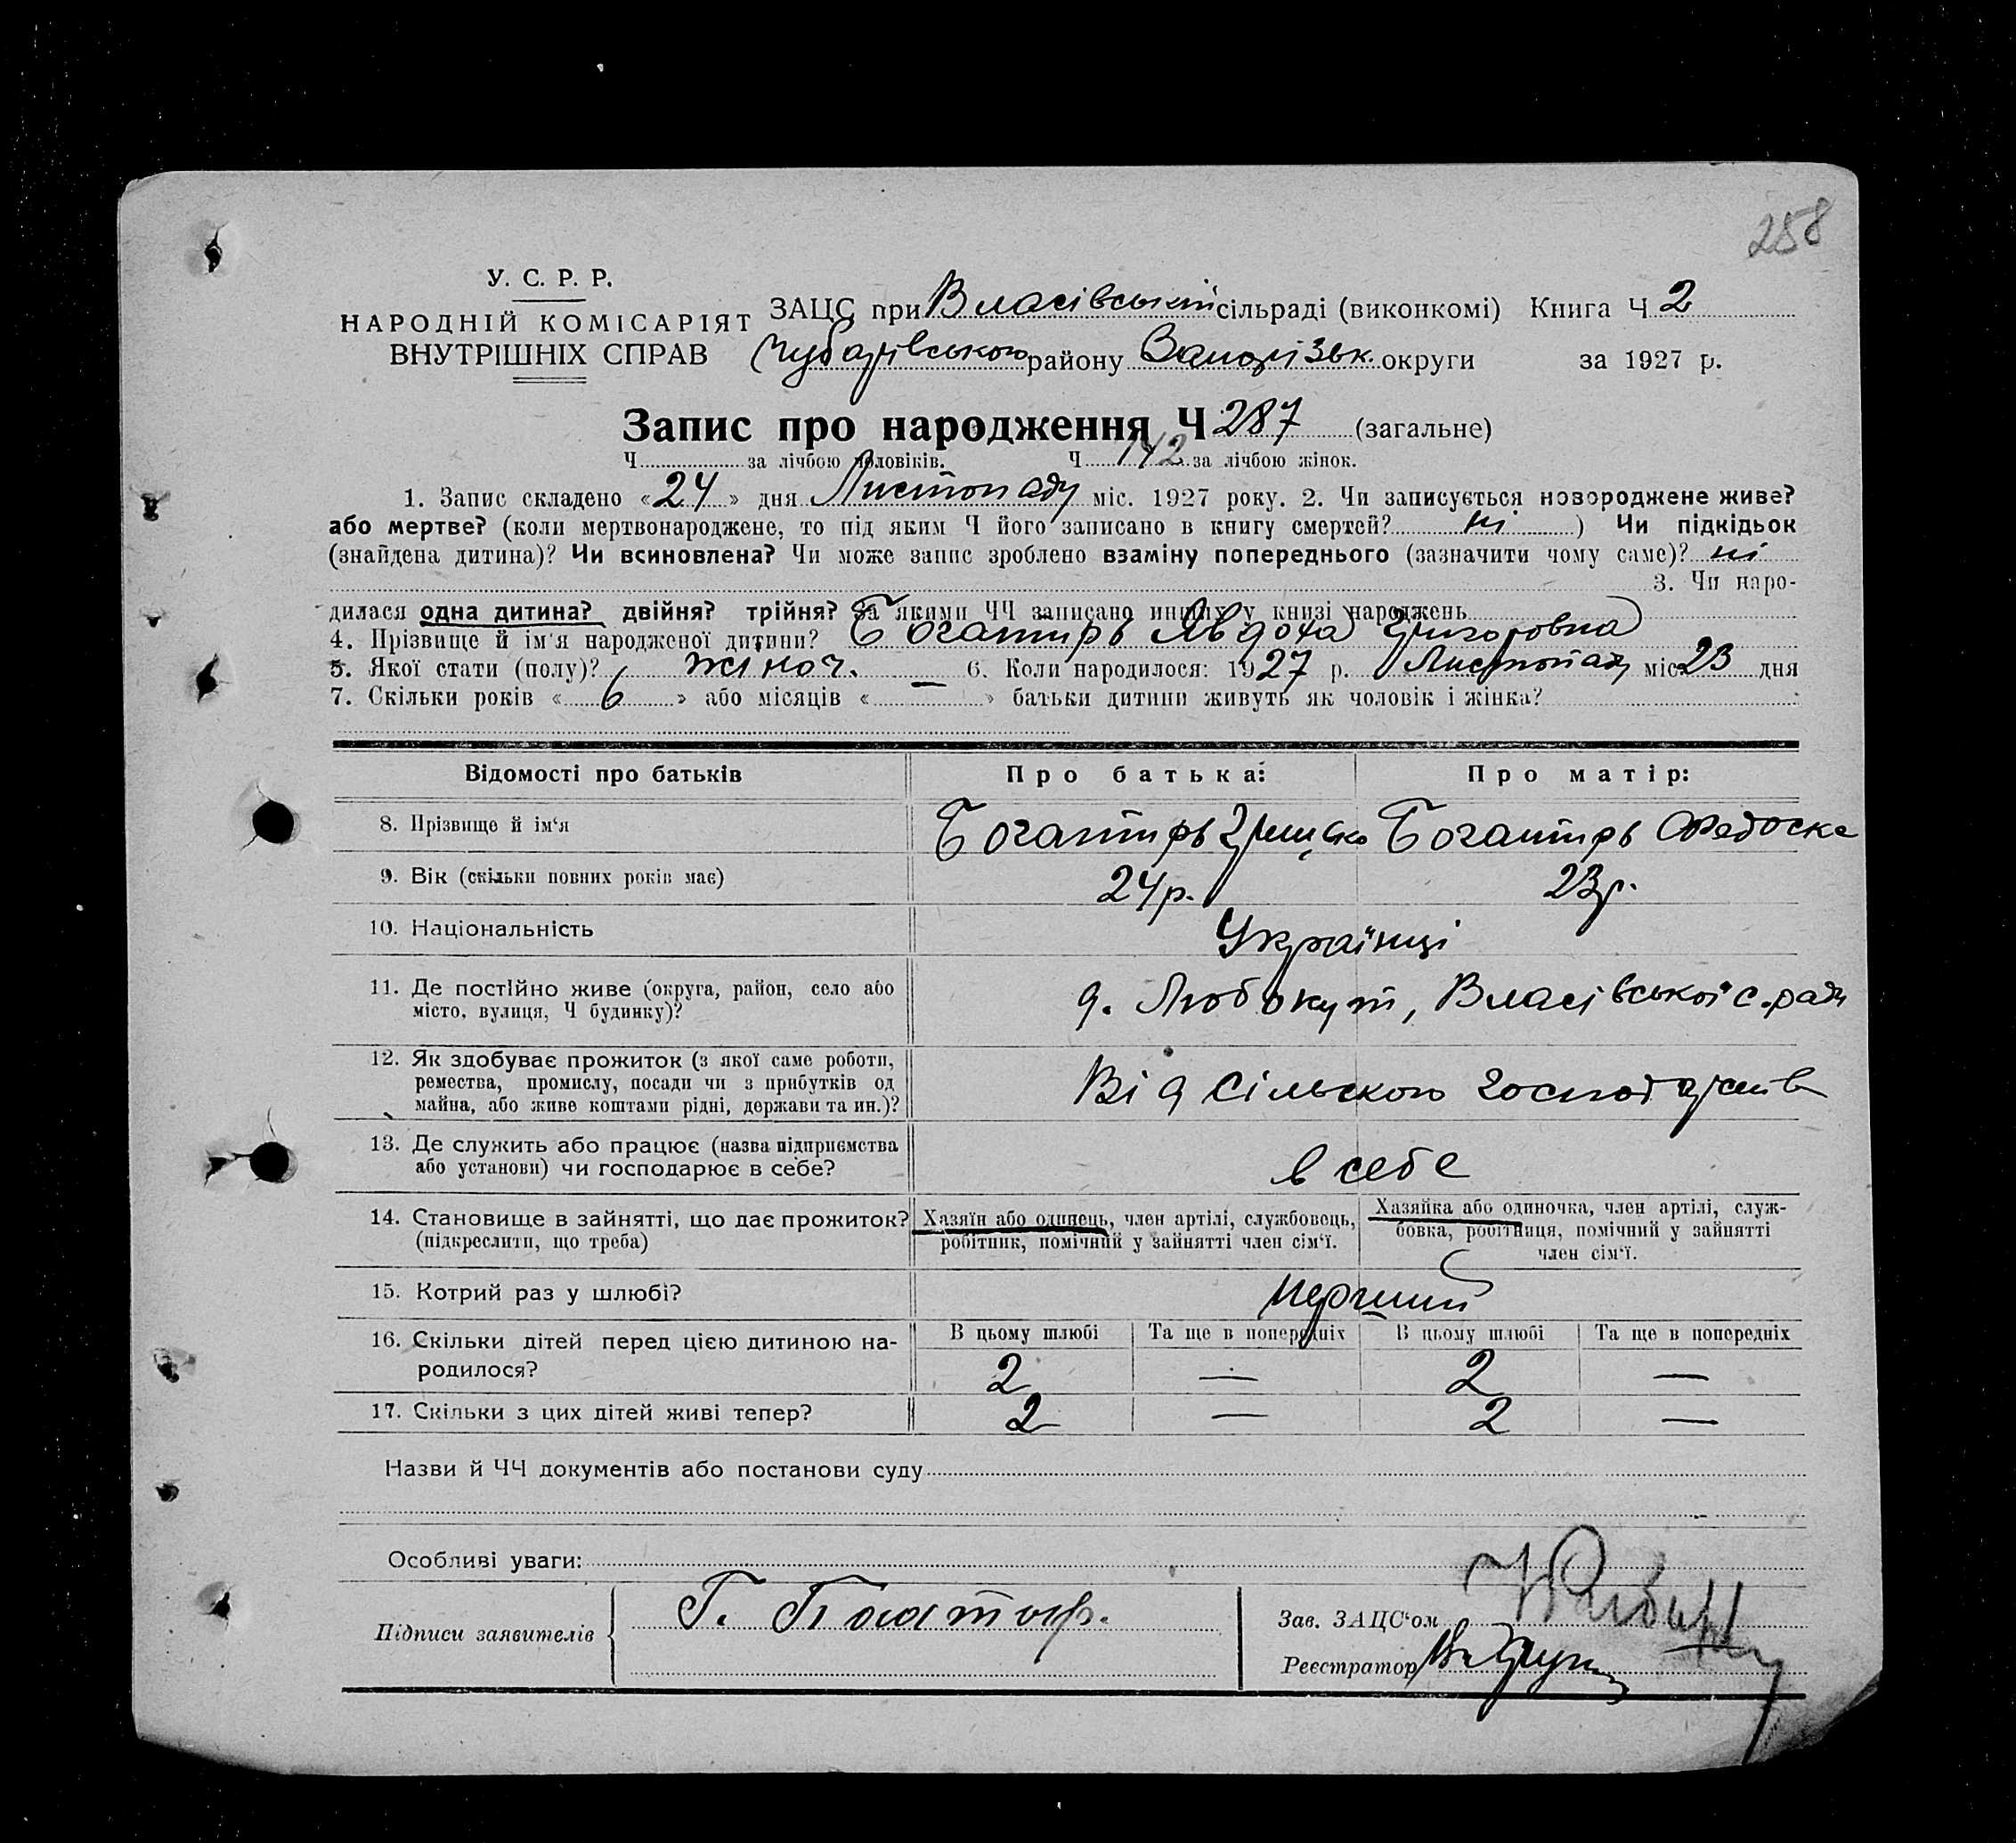 258
У. С. Р. Р.
НАРОДНІЙ КОМІСАРІЯТ
ВНУТРІШНІХ СПРАВ
ЗАЦС при Власівській сільраді (виконкомі) Книга Ч 2
Чубарівського району Запорізьк. округи за 1927 р.
Запис про народження Ч 287 (загальне)
Ч за лічбою чоловіків. Ч 142 за лічбою жінок.
1. Запис складено « 24 » дня Листопаду міс. 1927 року. 2. Чи записується новороджене живе?
або мертве? (коли мертвонароджене, то під яким Ч його записано в книгу смертей? ні ) Чи підкідьок
(знайдена дитина)? Чи всиновлена? Чи може запис зроблено взаміну попереднього (зазначити чому саме)? ні
3. Чи наро-
дилася одна дитина? двійня? трійня? За якими ЧЧ записано инших у книзі народжень
4. Прізвище й ім'я народженої дитини? Богатирь Явдоха Григоровна
5. Якої стати (полу)? жіноч. 6. Коли народилося: 1927 р. Листопаду міс. 23 дня
7. Скільки років « 6 » або місяців « — » батьки дитини живуть як чоловік і жінка?
Відомості про батьків Про батька: Про матір:
8. Прізвище й ім'я Богатирь Богатирь
9. Вік (скільки повних років має) 24р. 23р.
10. Національність Українці
11. Де постійно живе (округа, район, село або
місто, вулиця, Ч будинку)?
д. Любокут, Власівської с.ради
12. Як здобуває прожиток (з якої саме роботи,
ремества, промислу, посади чи з прибутків од
майна, або живе коштами рідні, держави та ин.)?
Від сільского
13. Де служить або працює (назва підприємства
або установи) чи господарює в себе?
в себе
14. Становище в зайнятті, що дає прожиток?
(підкреслити, що треба)
Хазяїн або одинець, член артілі, службовець,
робітник, помічний у зайнятті член сім'ї.
Хазяйка або одиночка, член артілі, служ-
бовка, робітниця, помічний у зайнятті
член сім'ї.
15. Котрий раз у шлюбі? перший
16. Скільки дітей перед цією дитиною на-
родилося?
В цьому шлюбі Та ще в попередніх В цьому шлюбі Та ще в попередніх
2 — 2 —
17. Скільки з цих дітей живі тепер? 2 — 2 —
Назви й ЧЧ документів або постанови суду
Особливі уваги:
Підписи заявителів Г.
Зав. ЗАЦС'ом
Реєстратор